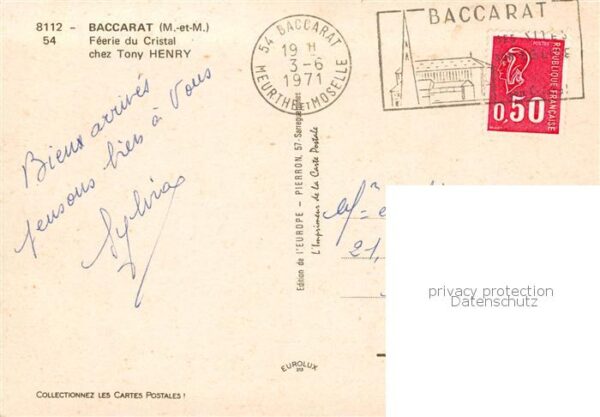 8112 - BACCARAT (M.-et-M.)
54 Féerie du Cristal
chez Tony HENRY
54 BACCARAT
19 H
3-6
1971
MEURTHE ET MOSELLE
BACCARAT
POSTES
REPUBLIQUE FRANCAISE
0,50
Bien arrivés
pensons bien à Vous
Sylvia
Edition de l'EUROPE - PIERRON, 57-Sarreguemines
L'Imprimeur de la Carte Postale
21,
privacy protection
Datenschutz
EUROLUX
COLLECTIONNEZ LES CARTES POSTALES !